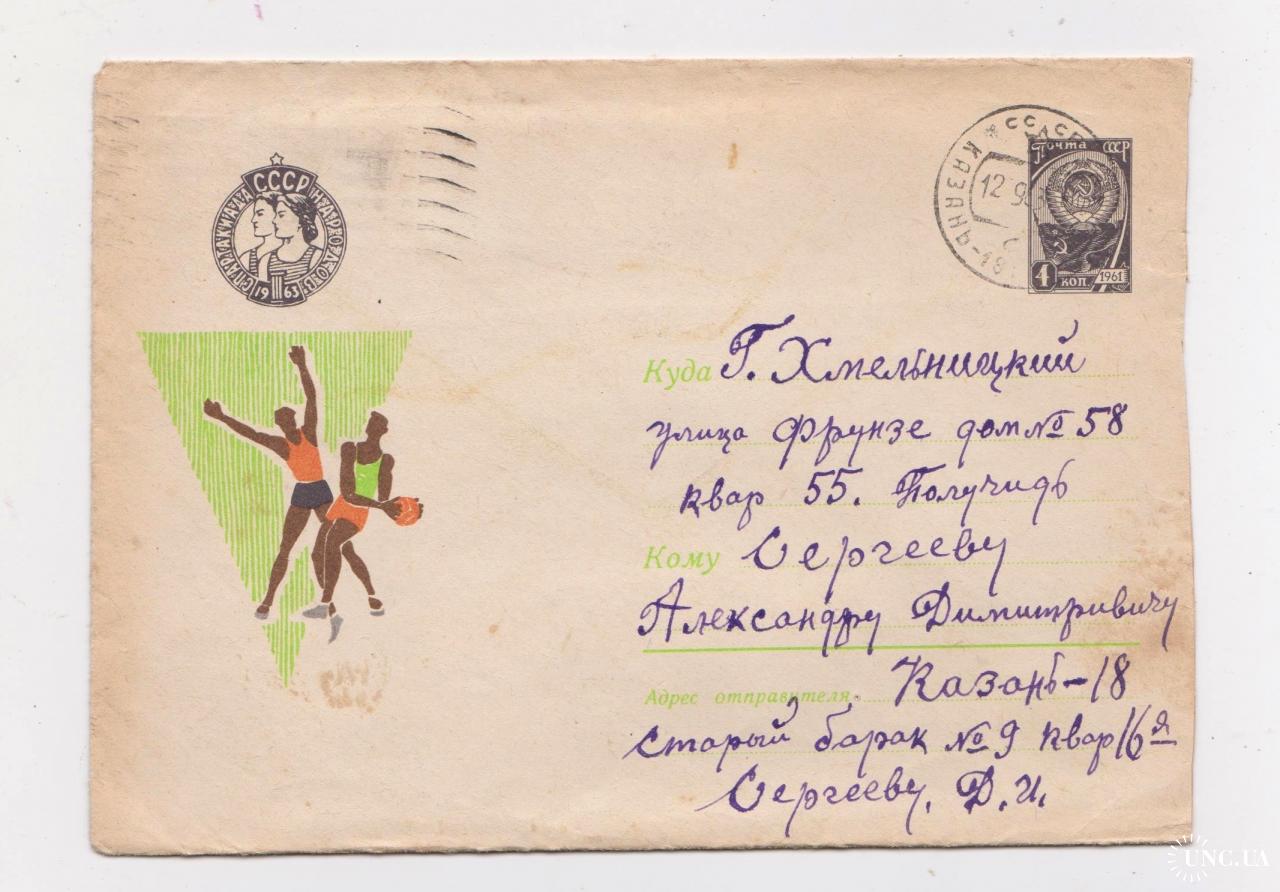 СССР
СПАРТАКИАДА НАРОДОВ
1963
СССР
КАЗАНЬ-18
12 9
Почта СССР
4 КОП. 1961
Куда Г. Хмельницкий
улица Фрунзе дом № 58
квар 55. Получидь
Кому Сергееву
Александру Димитривичу
Адрес отправителя. Казань-18
старый барак № 9 квар 16я
Сергееву. Д. И.
UNC.UA